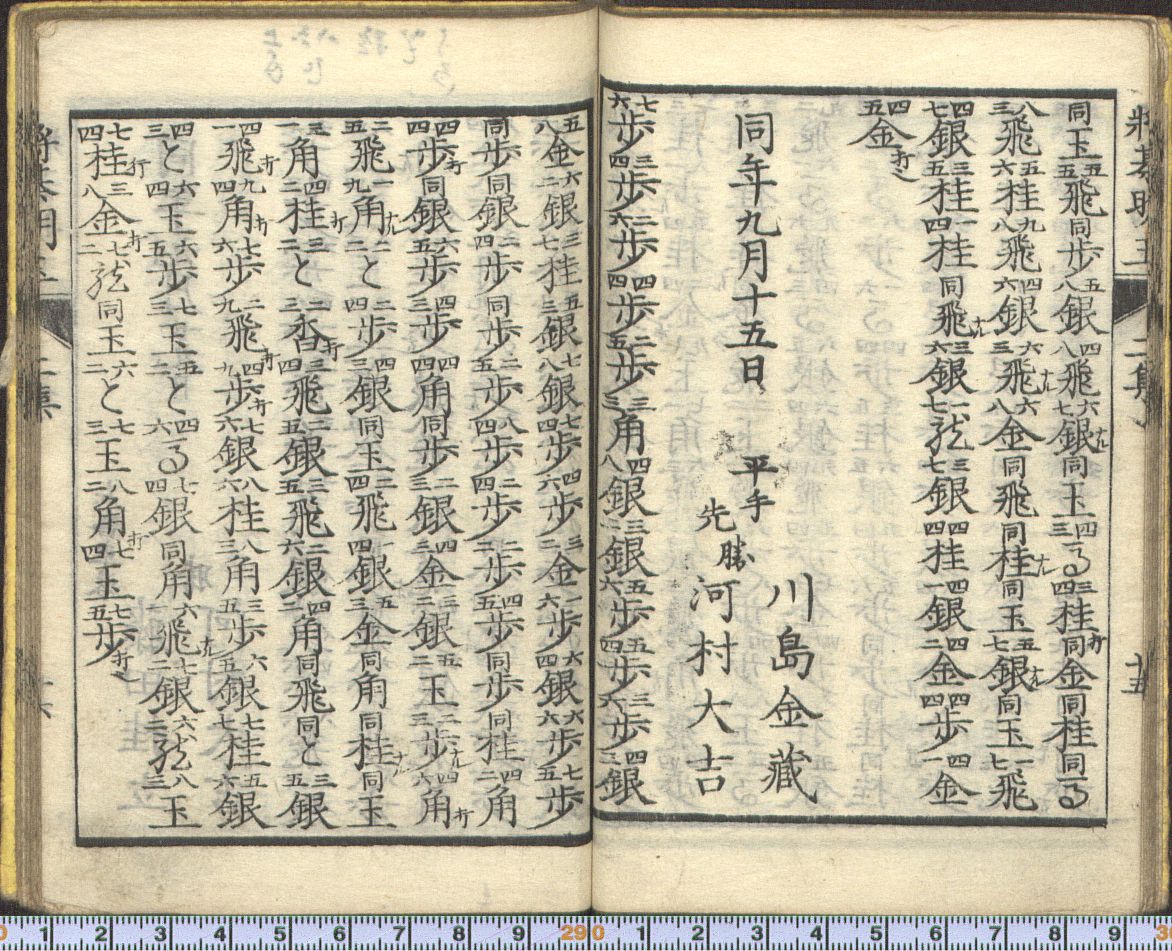 将棊明玉 二集 十五
同玉五五飛同歩五八銀四八飛六七銀ナル同玉四三る三四桂打同金同桂同る
八三飛五六桂九八飛四六銀六三飛ナル六八金同飛同桂ナル同玉五七銀ナル同玉一七飛
四七銀三五桂一四桂同飛ナル三六銀七龍三七銀四四桂四一銀四二金四四歩四一金
四五金打迄
同年九月十五日 平手 川島金藏
先勝 河村大吉
七六歩三四歩二六歩四四歩二五歩三三角四八銀三二銀五六歩五四歩三六歩四三銀
五八金六二銀三七桂五三銀七八銀七四歩四六歩三二金一六歩六四銀六六歩七五歩
同歩同銀二四歩同歩二五歩八四歩二四歩二二歩四五歩同歩同桂四二角
四四歩打同銀六五歩四三歩四四角同歩二三銀四三金三二銀五二玉二三歩ナル四六角打
二五飛一九角ナル二二と二四歩四三銀同玉二四飛四四銀五三金同角同桂ナル同玉
三一角四二桂打三二と二三香打三四飛二五銀三五飛二六銀四二角同飛同と三五銀
四一飛打九四角打七六歩二九飛打四九歩打七六銀八六桂八三角三五歩六五銀七七桂五六銀
四三と六四玉六五歩七三玉五二と四六る七四銀同角六一飛ナル七二銀六二龍八三玉
七四桂行三八金打七二龍同玉六二と七三玉八二角打七四玉七五歩打迄